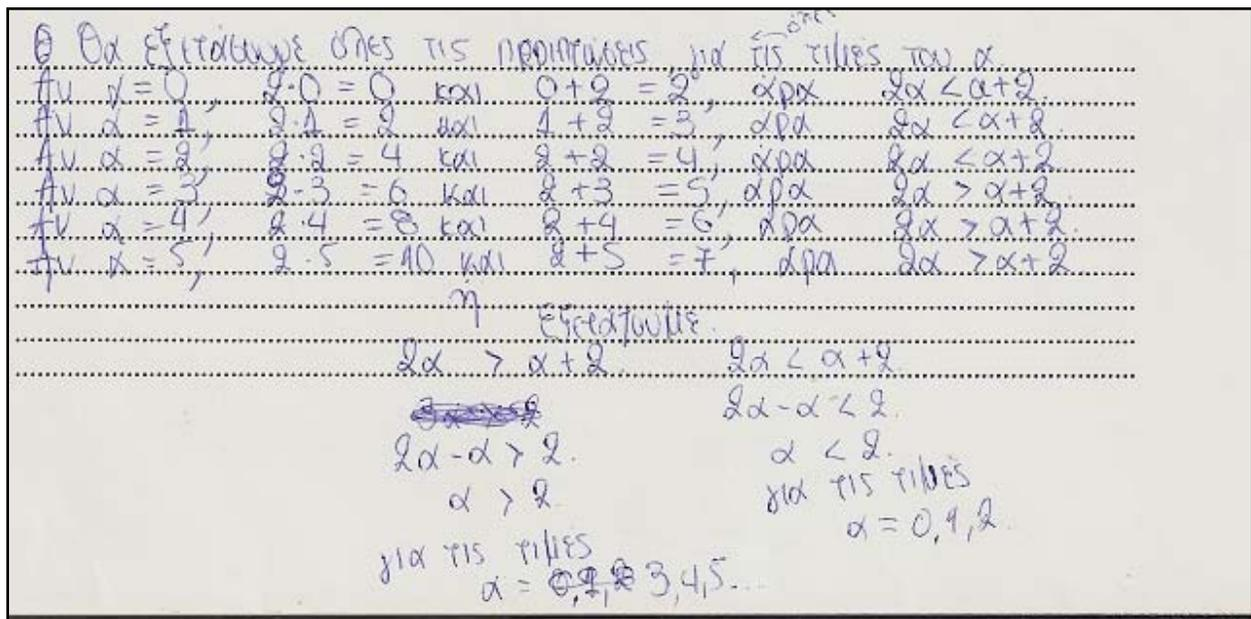 Θα εξετάσουμε όλες τις περιπτώσεις για όλες τις τιμές του α.
Αν α = 0, 2·0 = 0 και 0+2 = 2, άρα 2α < α+2.
Αν α = 1, 2·1 = 2 και 1+2 = 3, άρα 2α < α+2.
Αν α = 2, 2·2 = 4 και 2+2 = 4, άρα 2α < α+2.
Αν α = 3, 2·3 = 6 και 2+3 = 5, άρα 2α > α+2.
Αν α = 4, 2·4 = 8 και 2+4 = 6, άρα 2α > α+2.
Αν α = 5, 2·5 = 10 και 2+5 = 7, άρα 2α > α+2
ή
εξετάζουμε.
2α > α+2. 2α < α+2.
2α-α > 2. 2α-α < 2.
α > 2. α < 2.
για τις τιμές για τις τιμές
α = 3,4,5... α = 0,1,2.